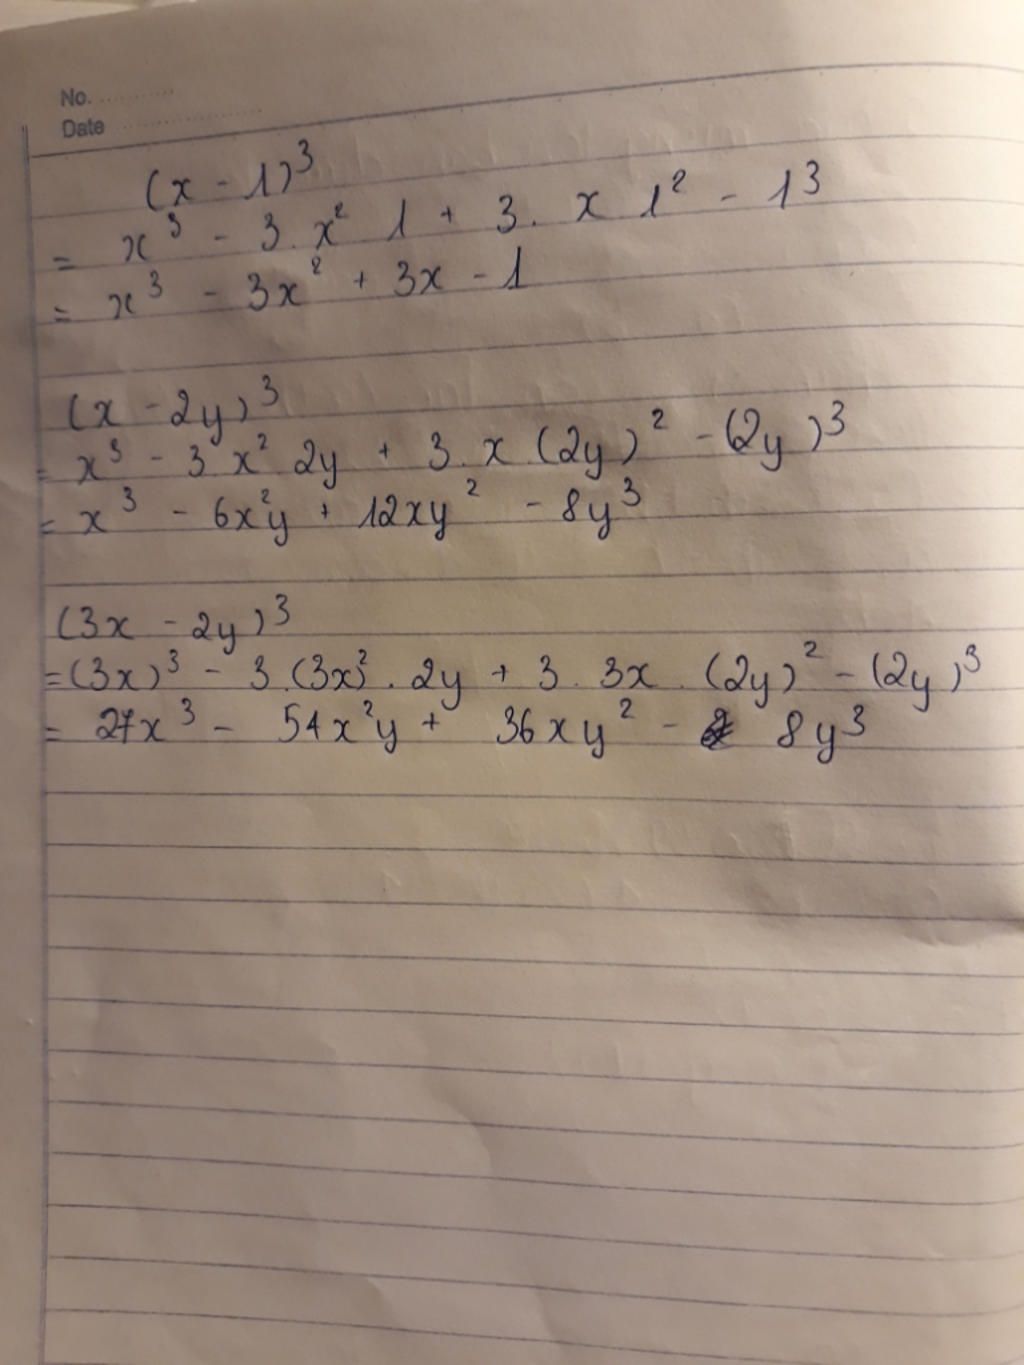 No. ............
Date ......................
(x - 1)³
= x³ - 3. x² 1 + 3. x 1² - 1³
= x³ - 3x² + 3x - 1
(x - 2y)³
= x³ - 3 x² 2y + 3. x (2y)² - (2y)³
= x³ - 6x²y + 12xy² - 8y³
(3x - 2y)³
= (3x)³ - 3.(3x)². 2y + 3. 3x. (2y)² - (2y)³
= 27x³ - 54x²y + 36xy² - 8y³